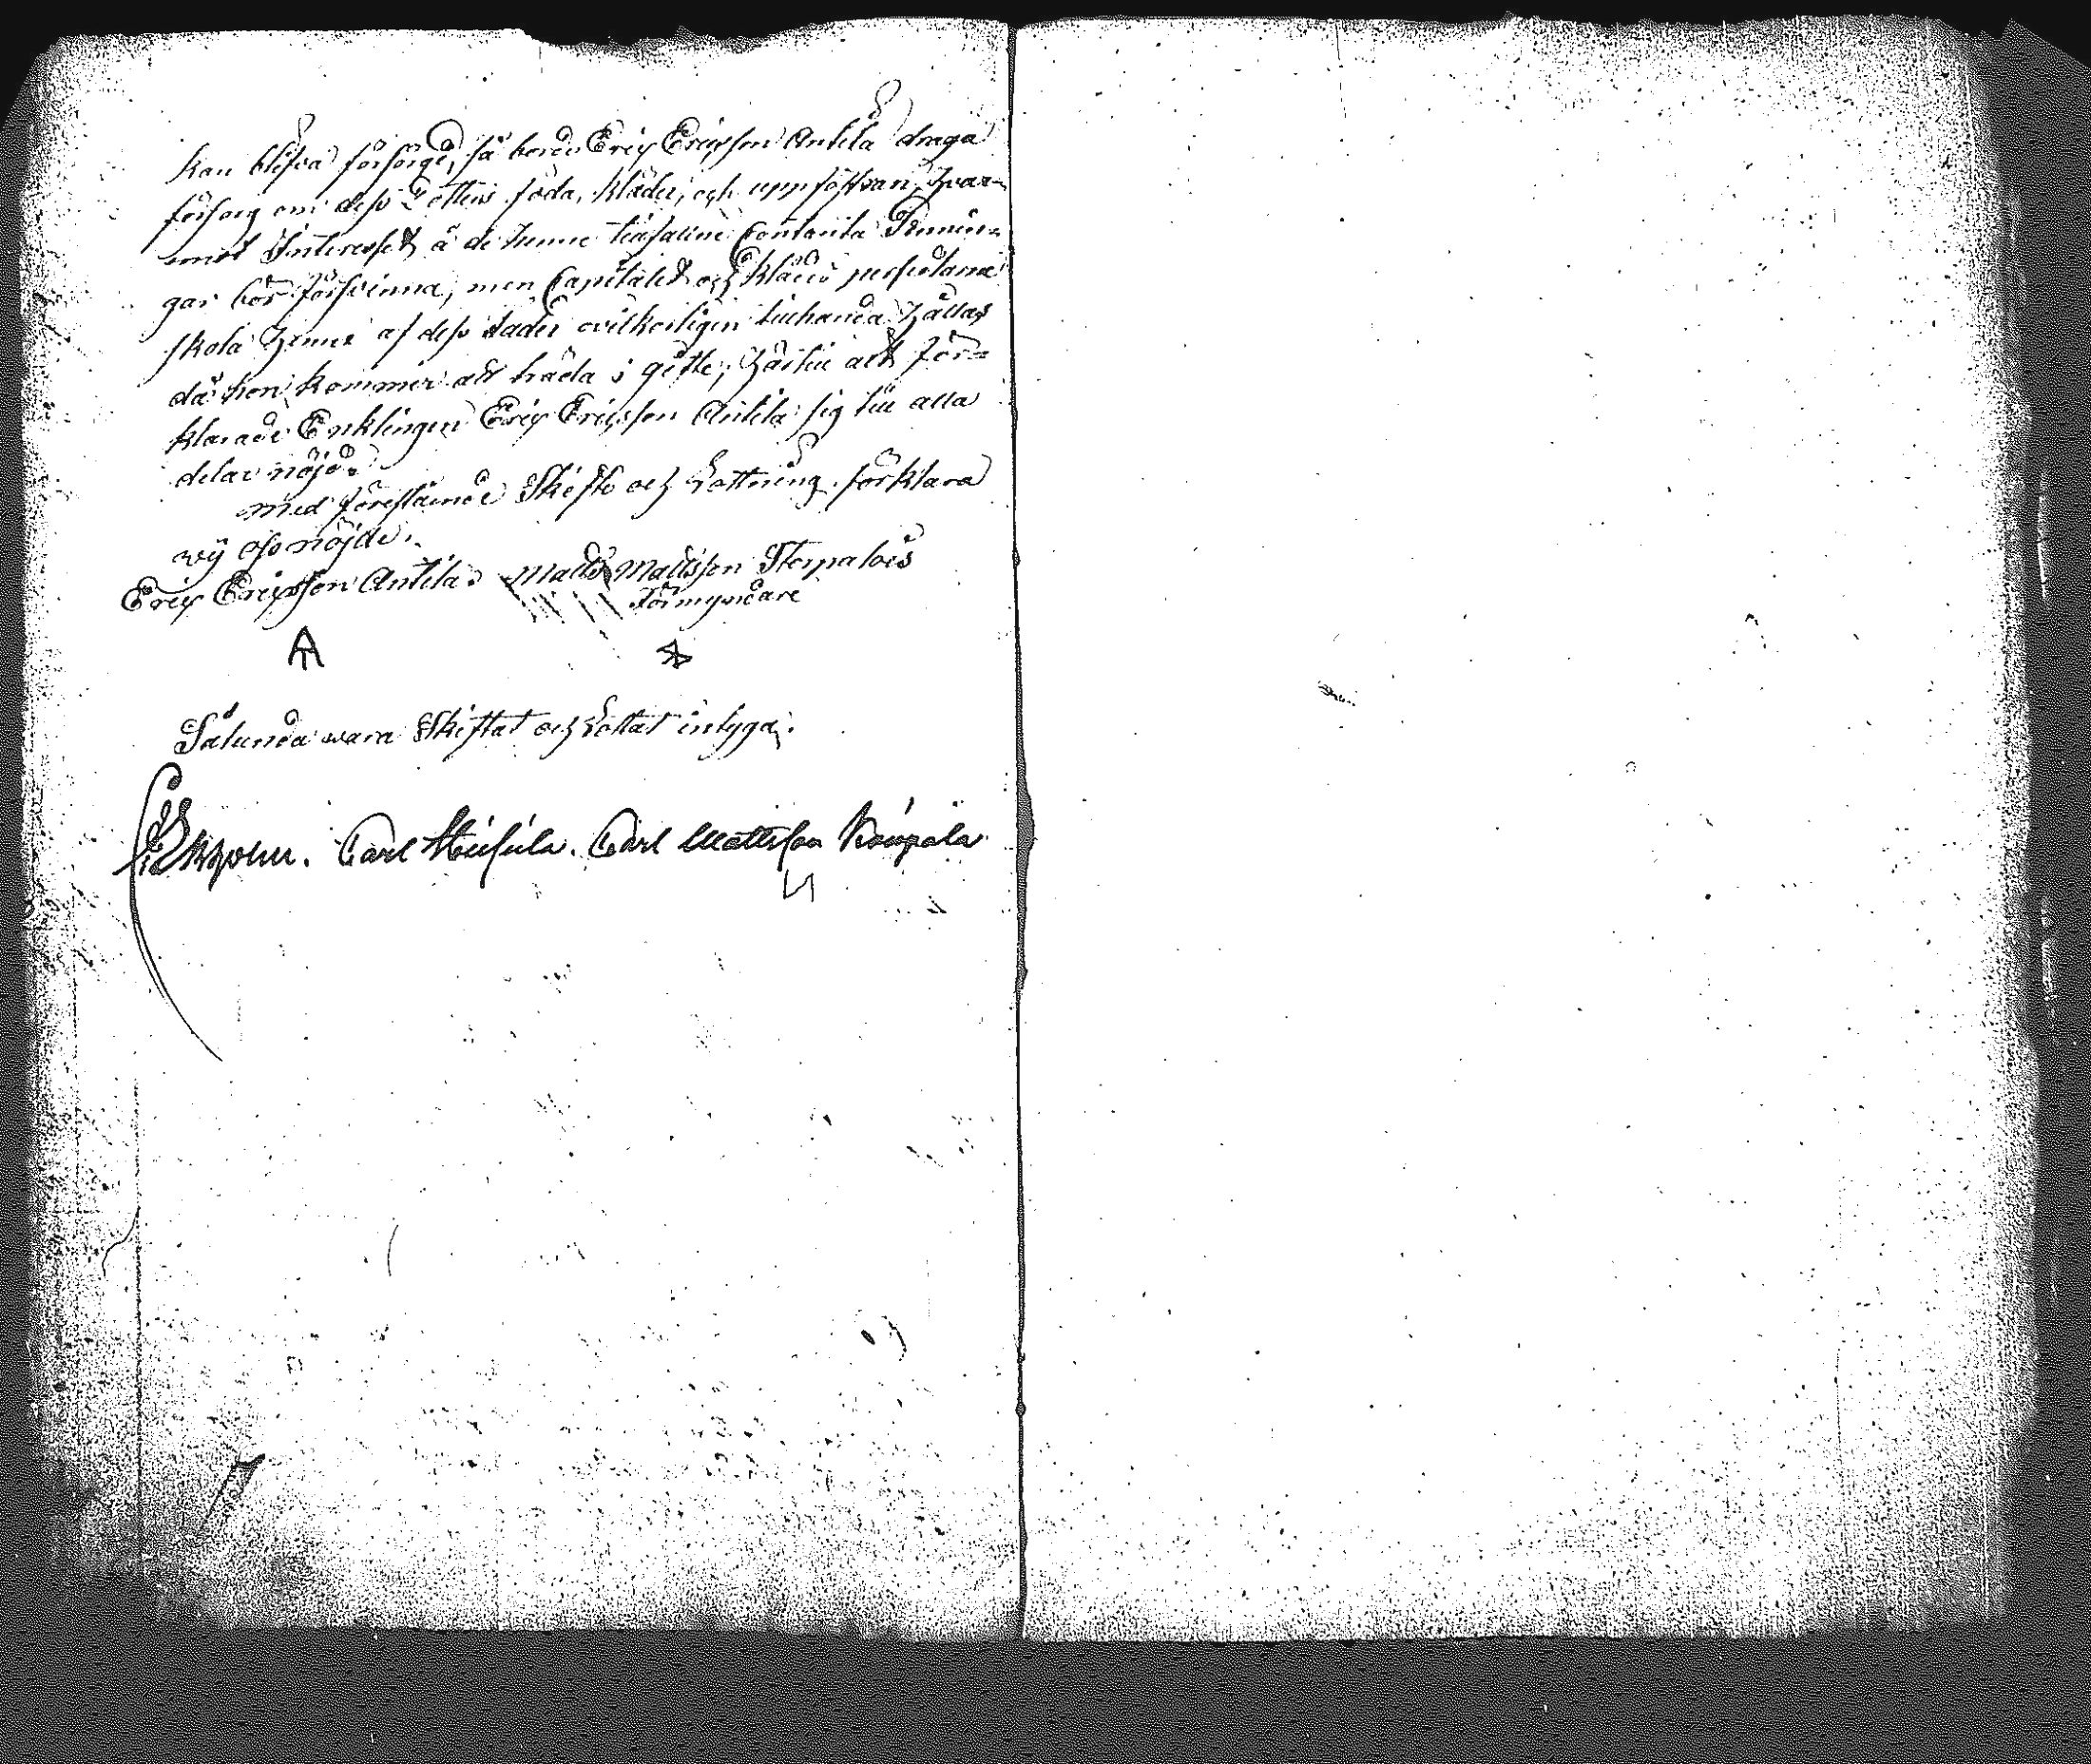 kan blifva försörgd, så borde Erix Erixsson Antila draga
försorg om dess Dotters föda, kläder, och uppföstran, hvar-
emot Interesset å de henne tillfallne Contanta Pennin-
gar bör försvinna, men Capitalet och
skola henne af dess fader ovilkorligen tillhanda hållas
då hon kommer att träda i gifte; härtill att för=
klarade Enklingen Erix Erixsson Antila sig till alla
delar nöjd.
med föreståénde Skifte och Lottning förklara
wij oss nöjde.
Erix Erixsson Antila. Matts Mattsson Storpalois
Förmyndare
Sålunda wara Skiftat och Lottat intyga.
Carl Carl Mattsson Knuopala